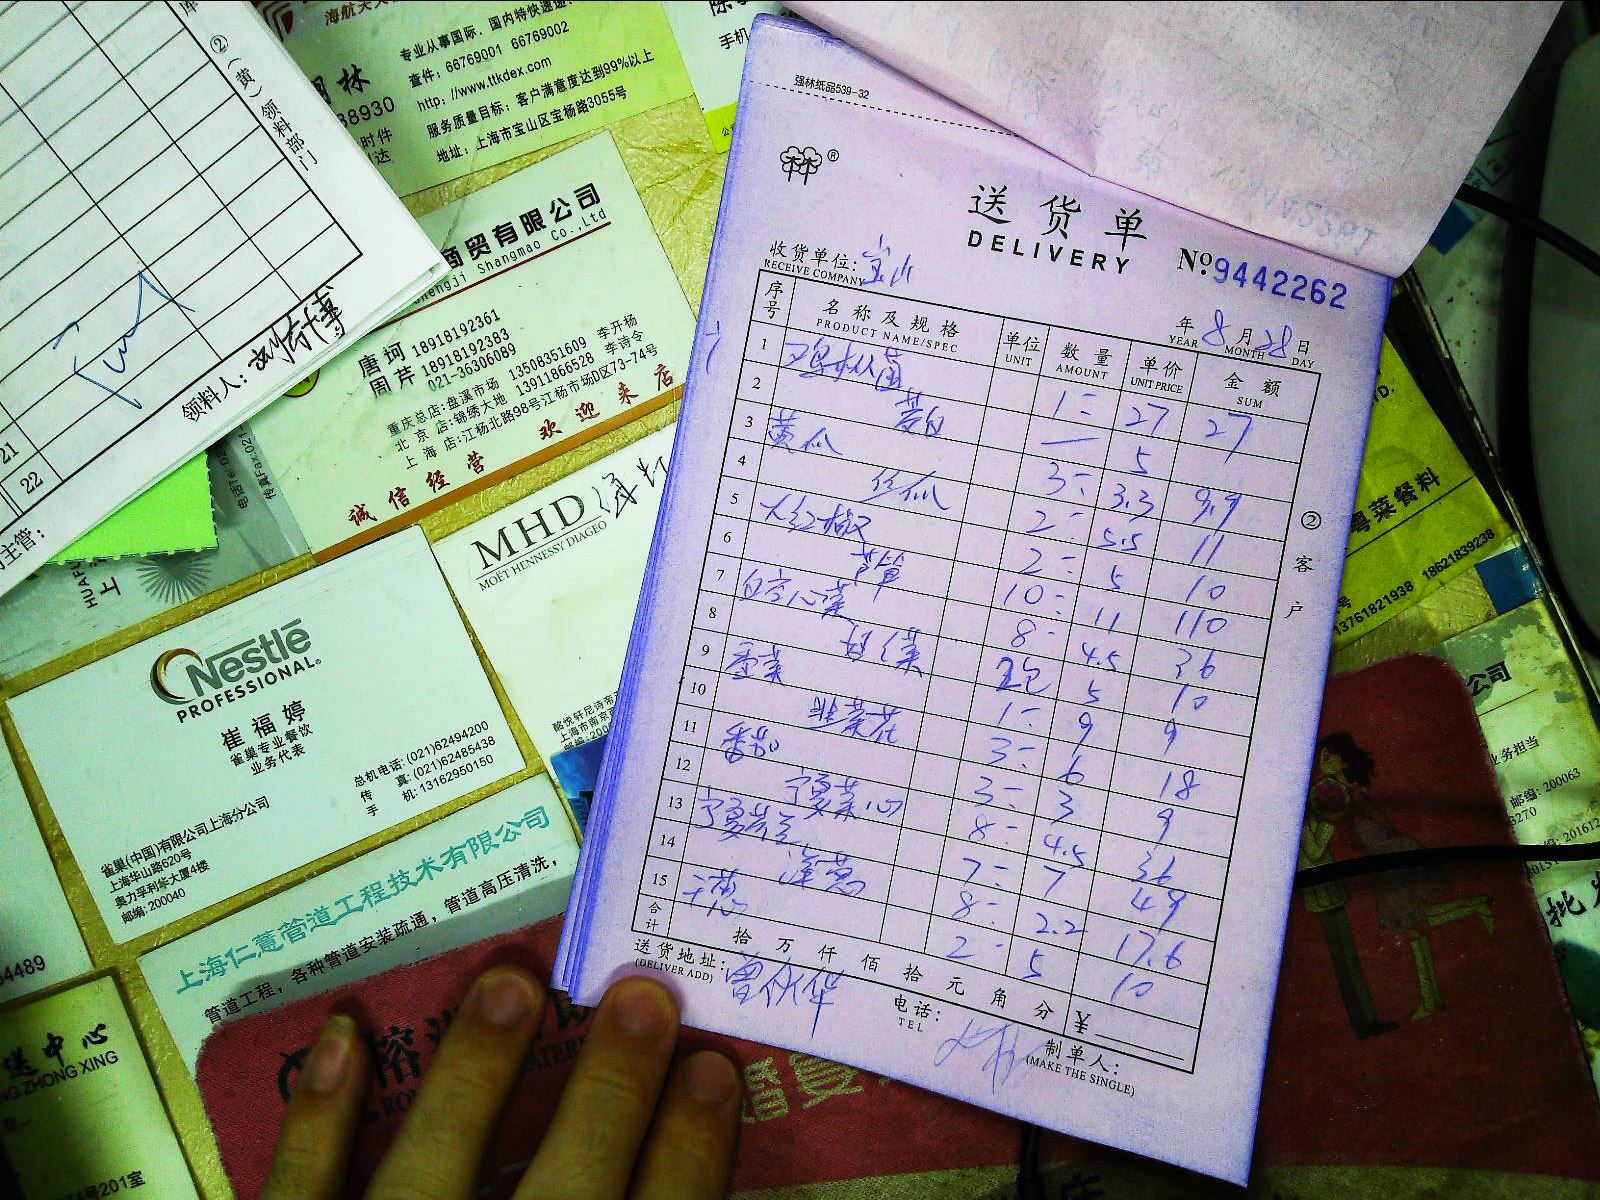 ②(黄)领料部门
领料人:
21
22
主管:
专业从事国际、国内特快速递、
查件: 66769001 66769002
http://www.ttkdex.com
服务质量目标: 客户满意度达到99%以上
地址: 上海市宝山区宝杨路3055号
手机
商贸有限公司
Shangmao Co.,Ltd
唐 珂 18918192361
周 芹 18918192383
021-3636089
重庆总店:盘溪市场 13508351609 李开杨
北京店:锦绣大地 13911866528 李诗令
上海店:江杨北路98号江杨市场D区73-74号
诚信经营 欢迎来店
MHD
MOËT HENNESSY DIAGEO
Nestlé
PROFESSIONAL®
崔福婷
雀巢专业餐饮
业务代表
总机电话: (021)62494200
传 真: (021)62485438
手 机: 13162950150
雀巢(中国)有限公司上海分公司
上海华山路620号
奥力孚利华大厦4楼
邮编: 200040
上海仁薏管道工程技术有限公司
管道工程, 各种管道安装疏通, 管道高压清洗,
送中心
NG ZHONG XING
号201室
强林纸品539-32
送货单
DELIVERY
№9442262
收货单位: 宝山
RECEIVE COMPANY
年 8 月 28 日
YEAR MONTH DAY
序号 名称及规格 单位 数量 单价 金额
PRODUCT NAME/SPEC UNIT AMOUNT UNIT PRICE SUM
1 27 27
2 5
3 黄瓜 3 3.3 9.9
4 丝瓜 2 5.5 11
5 大红椒 2 5 10
6 芦笋 10 11 110
7 白空心菜 8 4.5 36
8 2包 5 10
9 香菜 1 9 9
10 韭菜花 3 6 18
11 番茄 3 3 9
12 宁夏菜心 8 4.5 36
13 宁夏芥兰 7 7 49
14 洋葱 8 2.2 17.6
15 干葱 2 5 10
合计 拾 万 仟 佰 拾 元 角 分 ¥
送货地址:
(DELIVER ADD)
电话:
TEL
制单人:
(MAKE THE SINGLE)
②客户
粤菜餐料
13761821938 18621839238
公司
业务担当
邮编: 200063